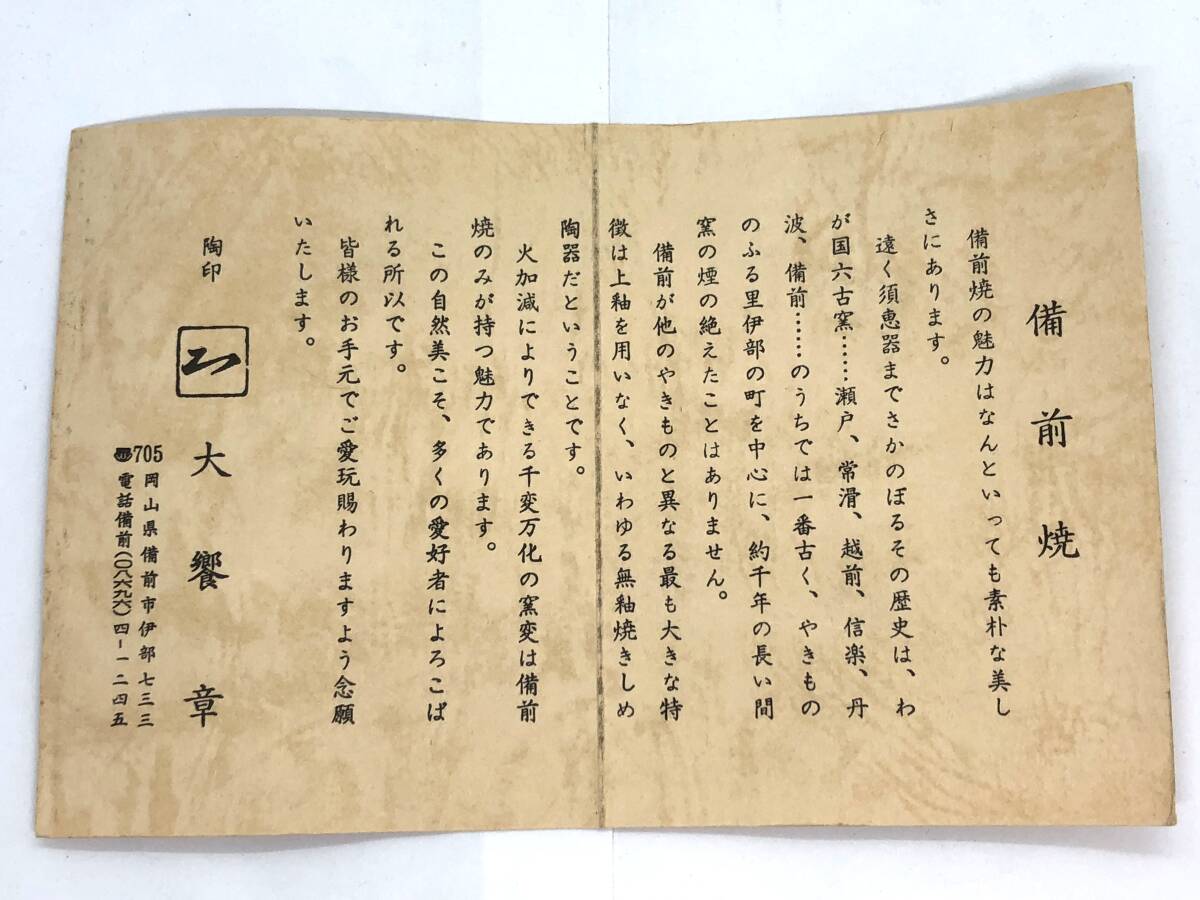 備前焼
備前焼の魅力はなんといっても素朴な美し
さにあります。
遠く須恵器までさかのぼるその歴史は、わ
が国六古窯……瀬戸、常滑、越前、信楽、丹
波、備前……のうちでは一番古く、やきもの
のふる里伊部の町を中心に、約千年の長い間
窯の煙の絶えたことはありません。
備前が他のやきものと異なる最も大きな特
徴は上釉を用いなく、いわゆる無釉焼きしめ
陶器だということです。
火加減によりできる千変万化の窯変は備前
焼のみが持つ魅力であります。
この自然美こそ、多くの愛好者によろこば
れる所以です。
皆様のお手元でご愛玩賜わりますよう念願
いたします。
陶印
大饗章
705 岡山県備前市伊部七三三
電話備前(〇八六九六)四-一二四五